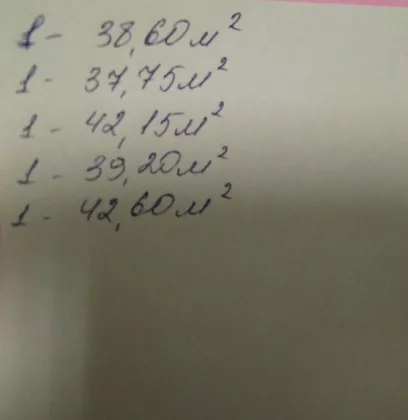 1 - 38,60м²
1 - 37,75м²
1 - 42,15м²
1 - 39,20м²
1 - 42,60м²